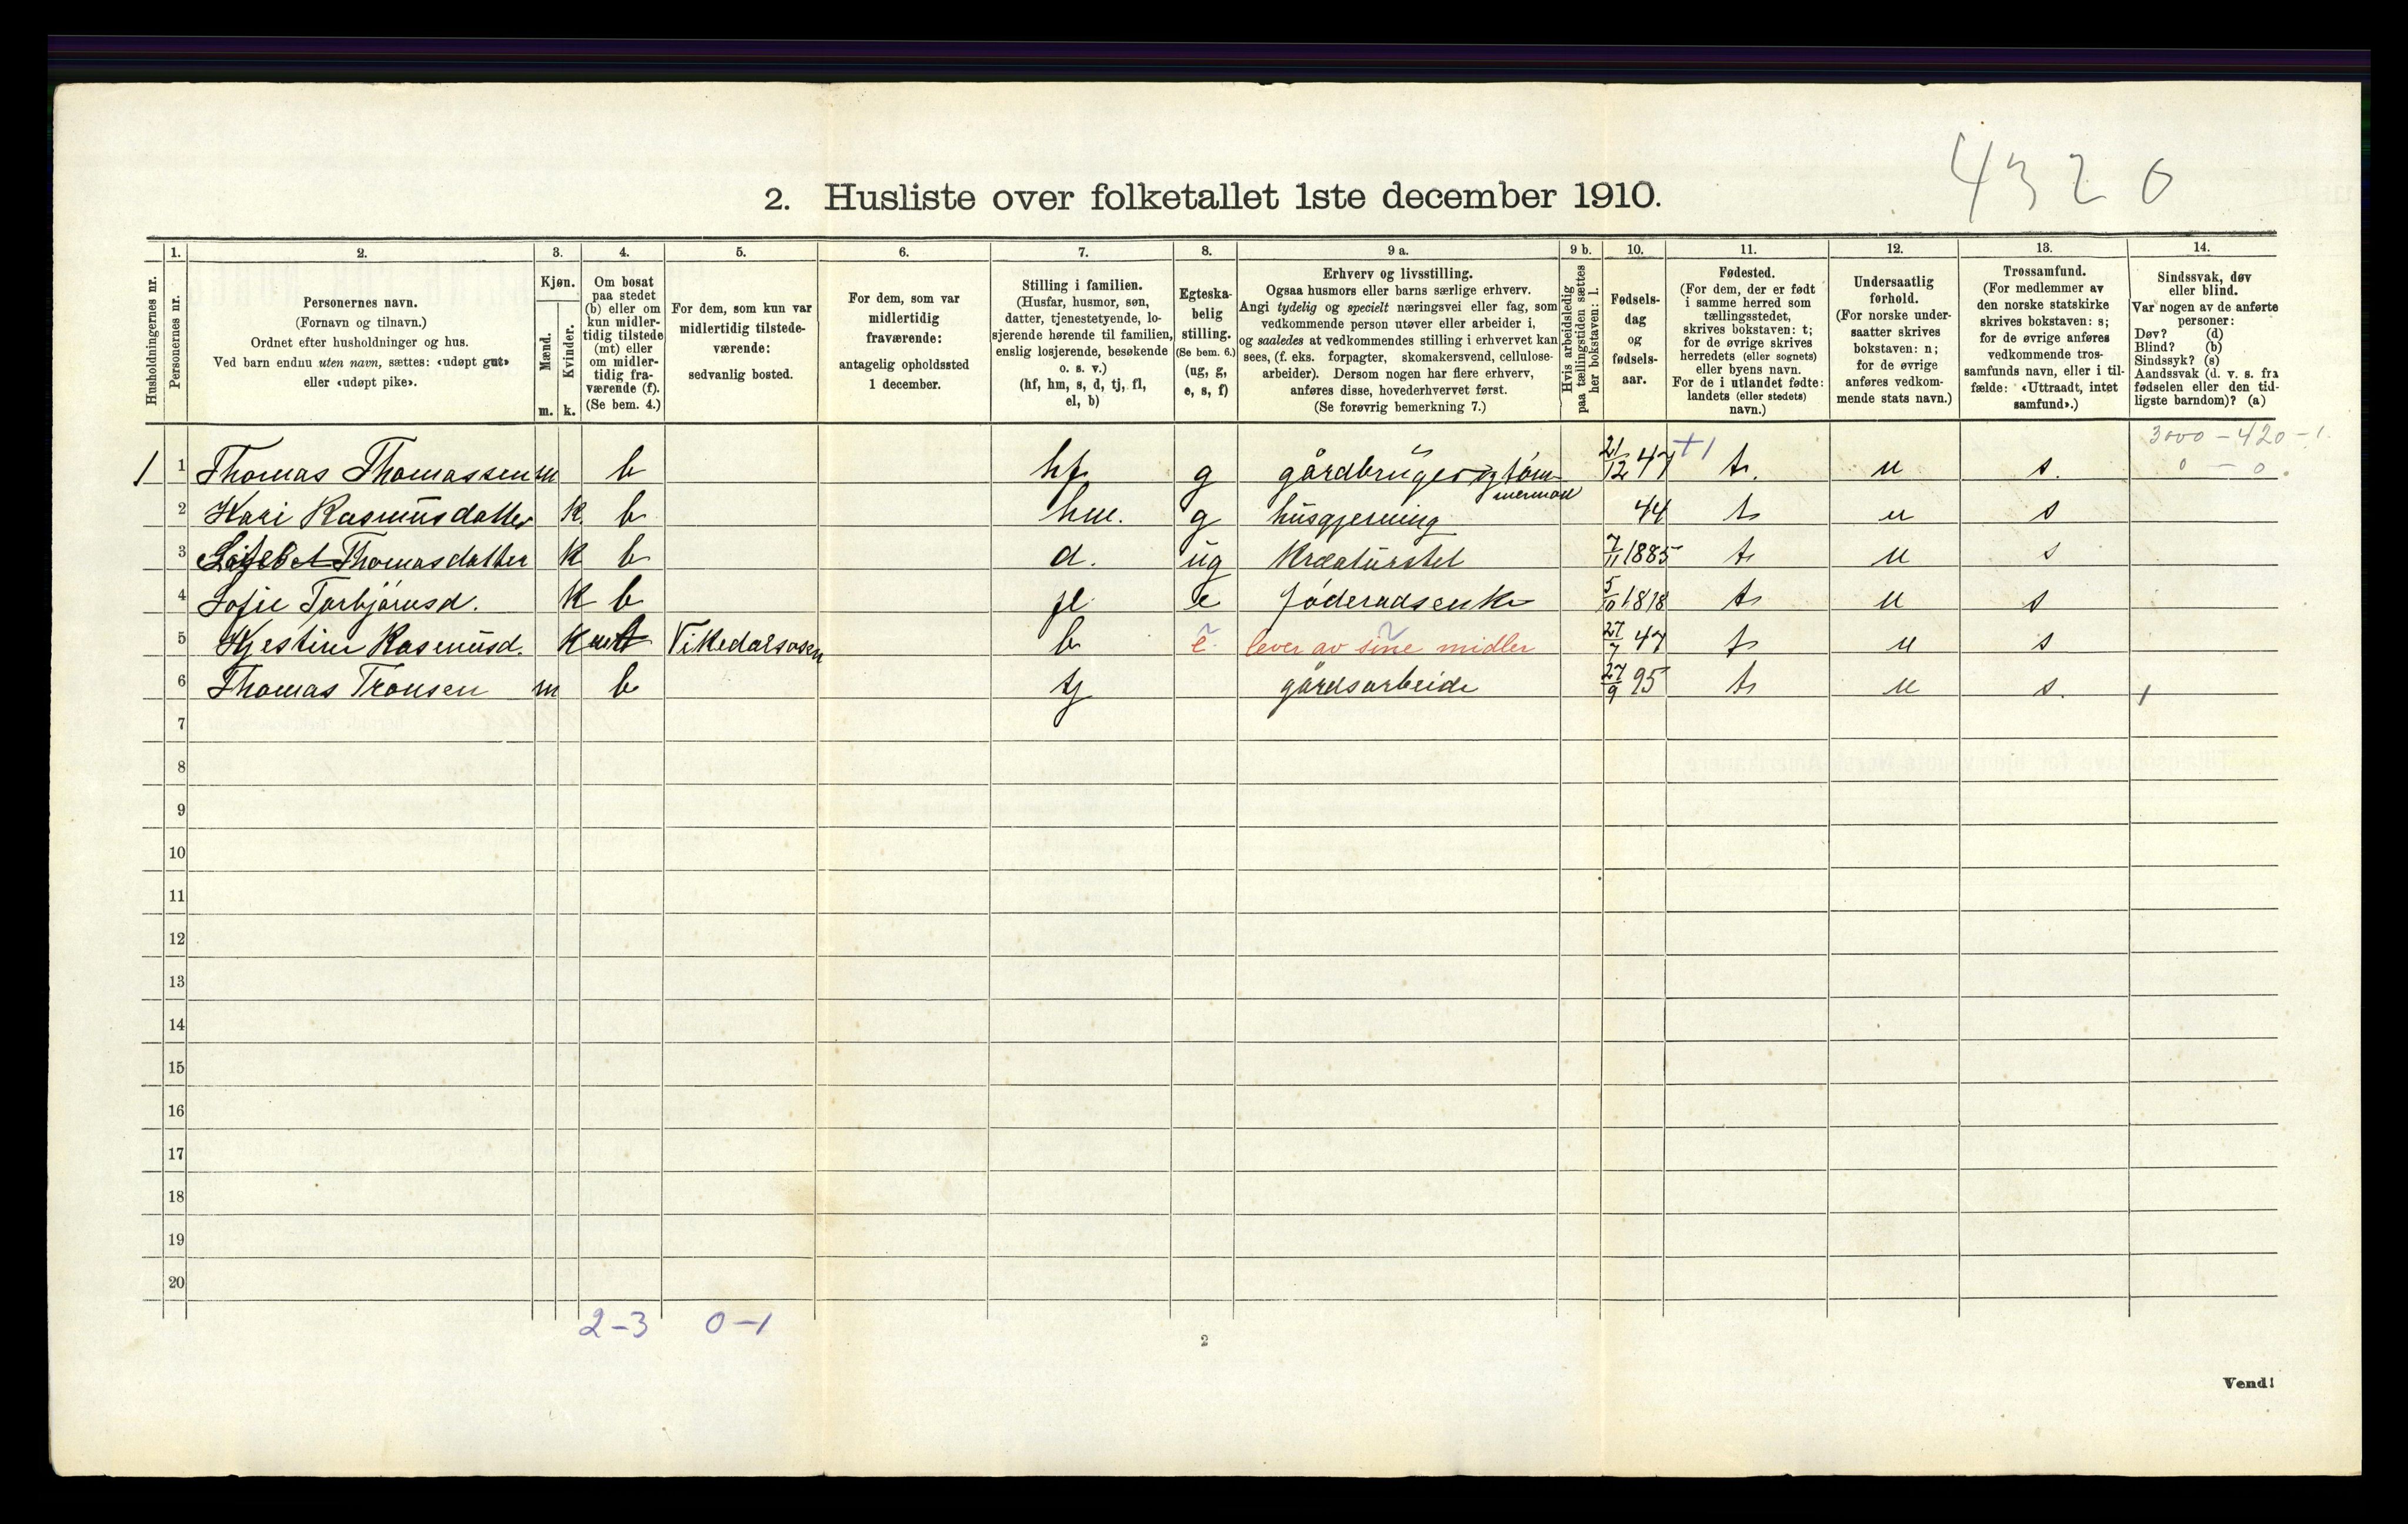 4320
2. Husliste over folketallet 1ste december 1910.
Husholdningernes nr.
1. Personernes nr.
2. Personernes navn.
(Fornavn og tilnavn.)
Ordnet efter husholdninger og hus.
Ved barn endnu uten navn, sættes: «udøpt gut»
eller «udøpt pike».
3. Kjøn.
Mænd. m.
Kvinder. k.
4. Om bosat
paa stedet
(b) eller om
kun midler-
tidig tilstede
(mt) eller
om midler-
tidig fra-
værende (f).
(Se bem. 4.)
5. For dem, som kun var
midlertidig tilstede-
værende:
sedvanlig bosted.
6. For dem, som var
midlertidig
fraværende:
antagelig opholdssted
1 december.
7. Stilling i familien.
(Husfar, husmor, søn,
datter, tjenestetyende, lo-
sjerende hørende til familien,
enslig losjerende, besøkende
o. s. v.)
(hf, hm, s, d, tj, fl,
el, b)
8. Egteska-
belig
stilling.
(Se bem. 6.)
(ug, g,
e, s, f)
9 a. Erhverv og livsstilling.
Ogsaa husmors eller barns særlige erhverv.
Angi tydelig og specielt næringsvei eller fag, som
vedkommende person utøver eller arbeider i,
og saaledes at vedkommendes stilling i erhvervet kan
sees, (f. eks. forpagter, skomakersvend, cellulose-
arbeider). Dersom nogen har flere erhverv,
anføres disse, hovederhvervet først.
(Se forøvrig bemerkning 7.)
9 b. Hvis arbeidsledig
paa tællingstiden sættes
her bokstaven: l.
10. Fødsels-
dag
og
fødsels-
aar.
11. Fødested.
(For dem, der er født
i samme herred som
tællingsstedet,
skrives bokstaven: t;
for de øvrige skrives
herredets (eller sognets)
eller byens navn.
For de i utlandet fødte:
landets (eller stedets)
navn.)
12. Undersaatlig
forhold.
(For norske under-
saatter skrives
bokstaven: n;
for de øvrige
anføres vedkom-
mende stats navn.)
13. Trossamfund.
(For medlemmer av
den norske statskirke
skrives bokstaven: s;
for de øvrige anføres
vedkommende tros-
samfunds navn, eller i til-
fælde: «Uttraadt, intet
samfund».)
14. Sindssvak, døv
eller blind.
Var nogen av de anførte
personer:
Døv? (d)
Blind? (b)
Sindssyk? (s)
Aandssvak (d. v. s. fra
fødselen eller den tid-
ligste barndom)? (a)
3000 - 420 - 1.
0 - 0.
1 1 Thomas Thomassen m b hf g gårdbruger og tøm-mermand 21/12 47 +1 t. n s.
2 Kari Rasmusdatter k. b hm. g husgjerning 44 t n s
3 Thomasdatter k b d. ug Kreaturstel 7/11 1885 t n s
4 Sofie Torbjörnsd. k b fl e föderadsenke 5/10 1818 t n s
5 Kjestine Rasmusd. k mt Vikedalsosen b e lever av sine midler 27/7 47 t n s
6 Thomas Tronsen m b tj gårdsarbeide 27/9 95 t n s.
7
8
9
10
11
12
13
14
15
16
17
18
19
20
2-3 0-1
2
Vend!